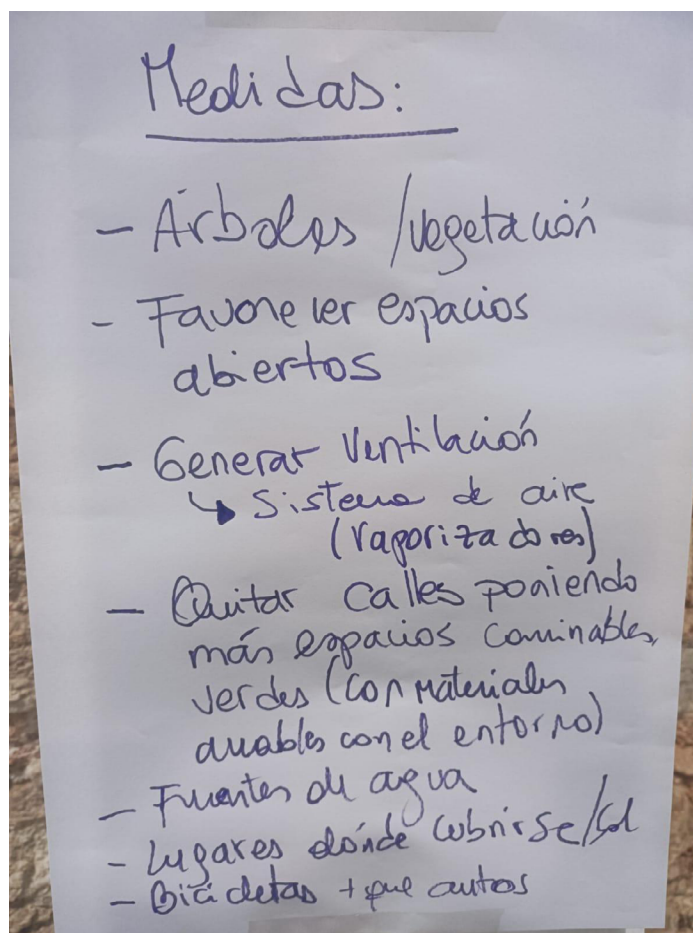 Medidas:
- Árboles /vegetación
- Favorecer espacios
abiertos
- Generar ventilación
↳ Sistema de aire
(vaporizadores)
- Quitar calles poniendo
más espacios caminables,
verdes (con materiales
amables con el entorno)
- Fuentes de agua
- Lugares dónde cubrirse/sol
- Bicicletas + que autos